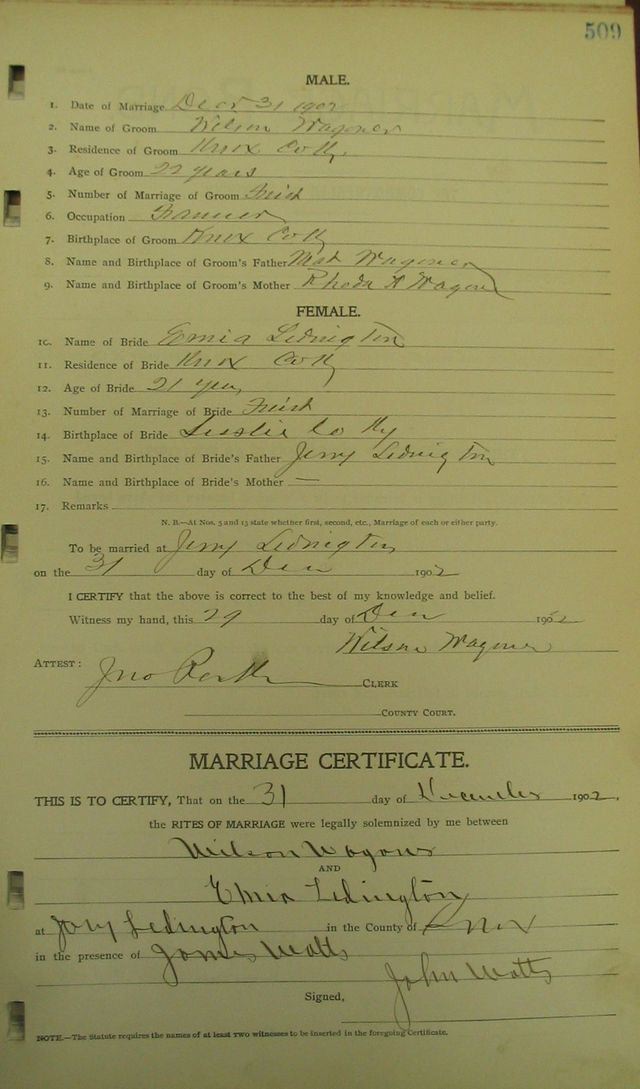 509
MALE.
1. Date of Marriage Dec 31 1902
2. Name of Groom Wilson Wagoner
3. Residence of Groom Knox Co Ky.
4. Age of Groom 22 years
5. Number of Marriage of Groom First
6. Occupation Farmer
7. Birthplace of Groom Knox Co Ky
8. Name and Birthplace of Groom's Father Mat Wagoner
9. Name and Birthplace of Groom's Mother Rhoda A Wagoner
FEMALE.
10. Name of Bride Emia Ledington
11. Residence of Bride Knox Co Ky
12. Age of Bride 21 years
13. Number of Marriage of Bride First
14. Birthplace of Bride Leslie Co Ky
15. Name and Birthplace of Bride's Father Jerry Ledington
16. Name and Birthplace of Bride's Mother —
17. Remarks
N. B.—At Nos. 5 and 13 state whether first, second, etc., Marriage of each or either party.
To be married at Jerry Ledington
on the 31 day of Dec 1902
I CERTIFY that the above is correct to the best of my knowledge and belief.
Witness my hand, this 29 day of Dec 1902
Wilson Wagoner
ATTEST: Jno CLERK
COUNTY COURT.
MARRIAGE CERTIFICATE.
THIS IS TO CERTIFY, That on the 31 day of December 1902,
the RITES OF MARRIAGE were legally solemnized by me between
Wilson Wagoner
AND
Emia Ledington
at Jery Ledington in the County of Knox
in the presence of James Watts
John Watts
Signed,
NOTE.—The Statute requires the names of at least two witnesses to be inserted in the foregoing Certificate.